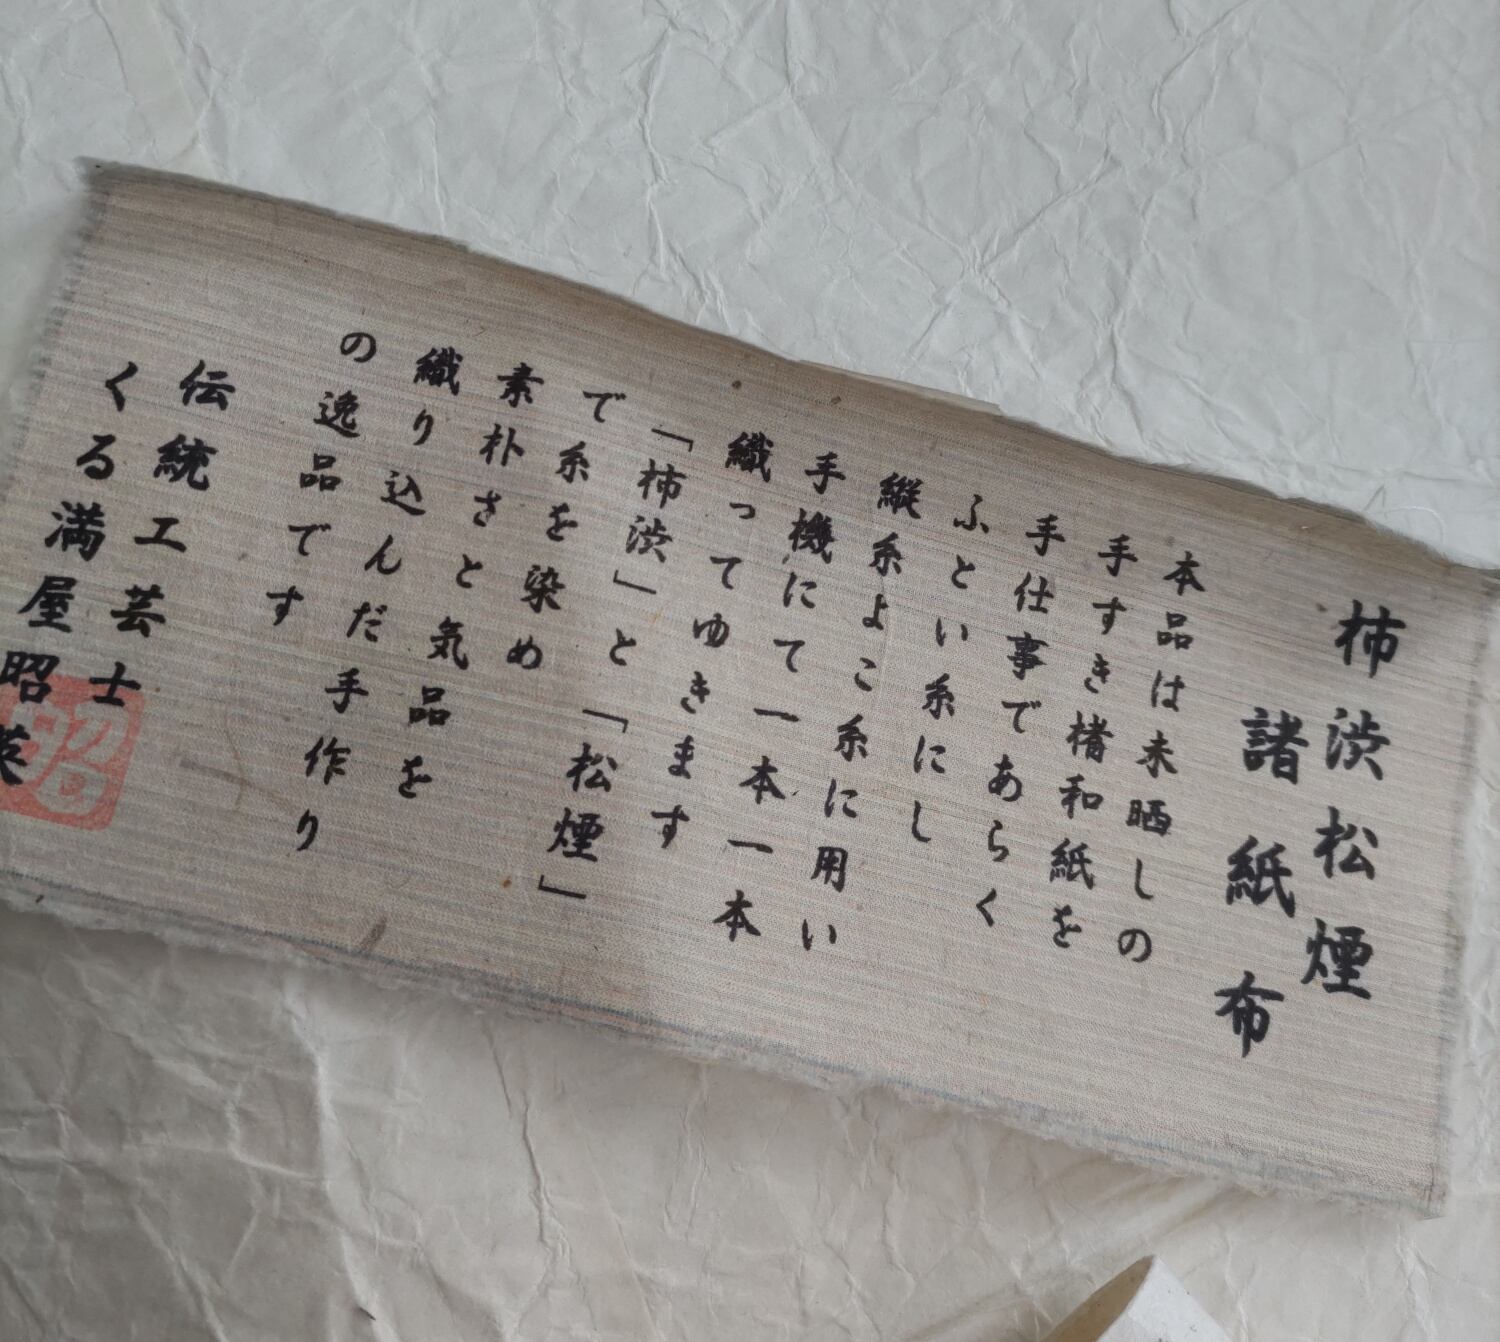 柿渋松煙
諸紙布
本品は未晒しの
手すき楮和紙を
手仕事であらく
ふとい糸にし
縦糸よこ糸に用い
手機にて一本一本
織ってゆきます
「柿渋」と「松煙」
で糸を染め
素朴さと気品を
織り込んだ手作り
の逸品です
伝統工芸士
くる満屋昭英